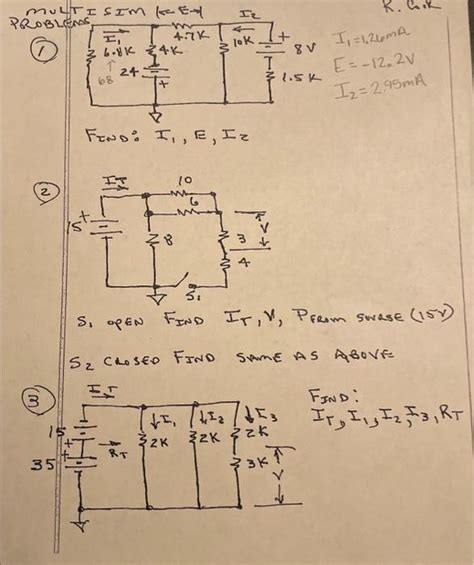 MULTISIM
PROBLEMS
K. G.K
|← E →|
I2
4.7K
①
I1
6.8K
68
4K
24
+
10K
+
8V
1.5K
I1=1.26mA
E=-12.2V
I2=2.95mA
FIND: I1, E, I2
②
IT
10
6
15
+
8
V
3
4
S1
S1 OPEN FIND IT, V, PFROM SOURSE (15V)
S2 CLOSED FIND SAME AS ABOVE
③
IT
15
+
35
+
RT
I1
2K
I2
2K
I3
2K
3K
V
FIND:
IT, I1, I2, I3, RT